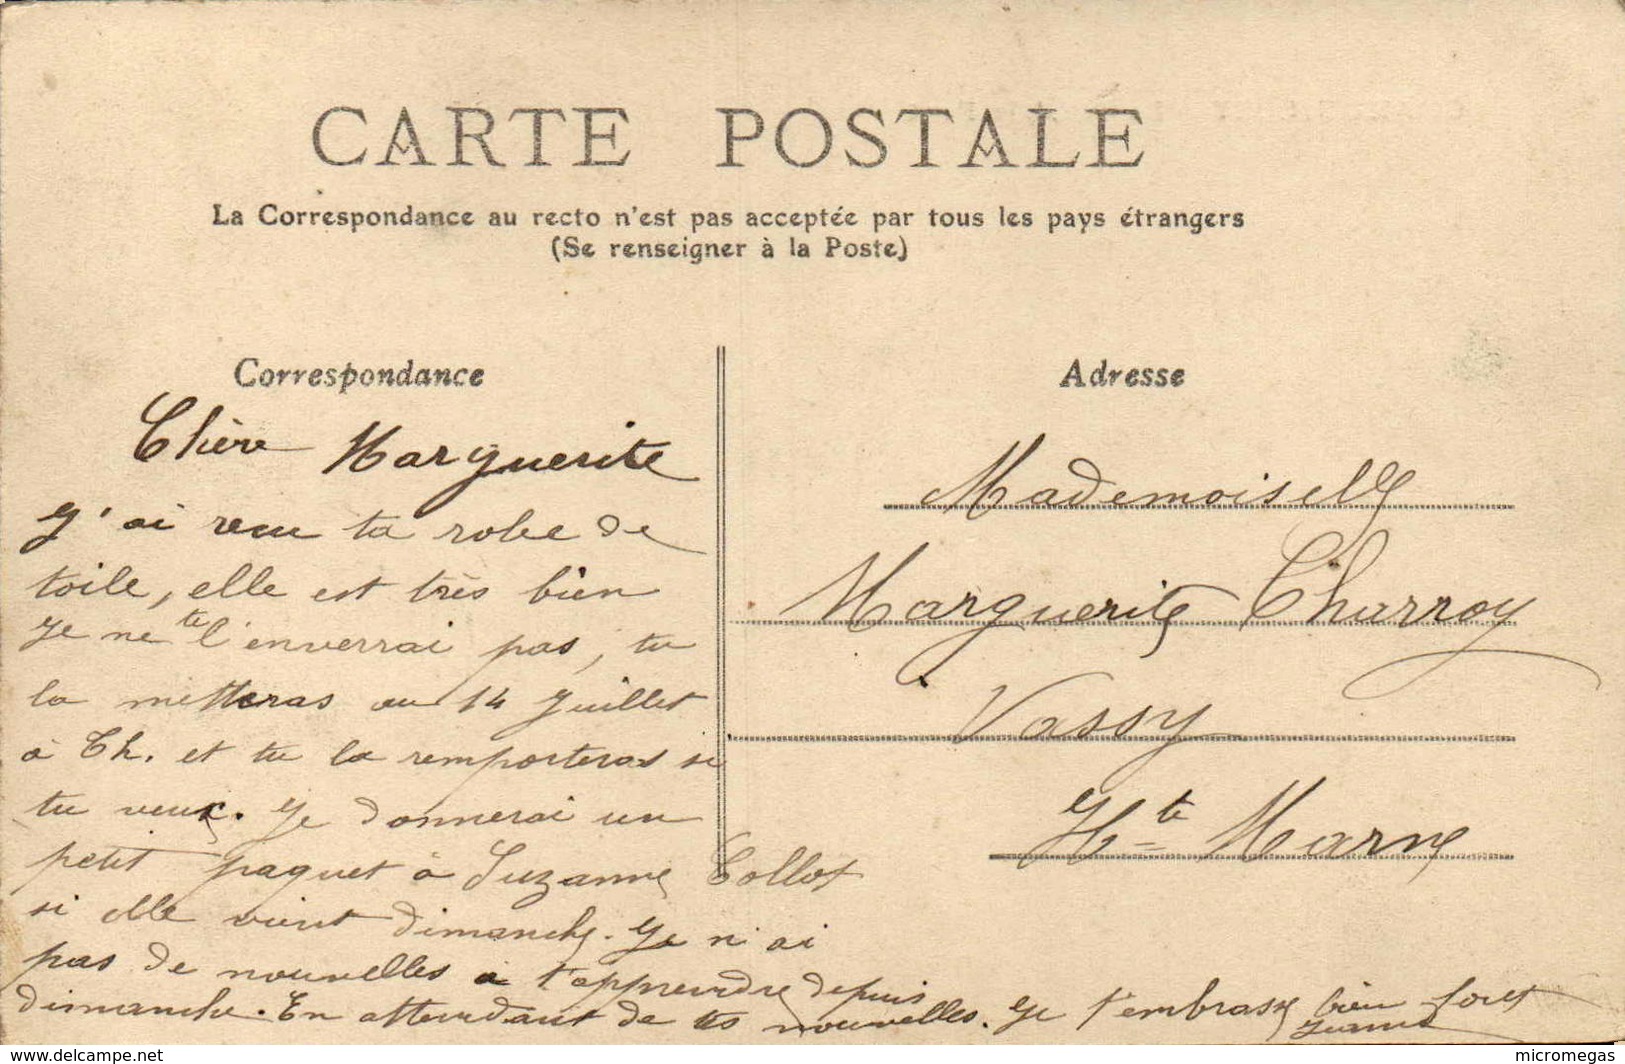 CARTE POSTALE
La Correspondance au recto n'est pas acceptée par tous les pays étrangers
(Se renseigner à la Poste)
Correspondance
Chère Marguerite
J'ai revu ta robe de
toile, elle est très bien
Je ne te l'enverrai pas, tu
la metteras au 14 Juillet
à Ch. et tu la remporteras si
tu veux. Je donnerai un
petit paquet à Suzanne Collot
si elle vient dimanche. Je n'ai
pas de nouvelles à t'apprendre depuis
dimanche. En attendant de tes nouvelles. Je t'embrasse bien fort
Jeanne
Adresse
Mademoiselle
Marguerite Charroy
Vassy
Hte Marne
delcampe.net
micromegas